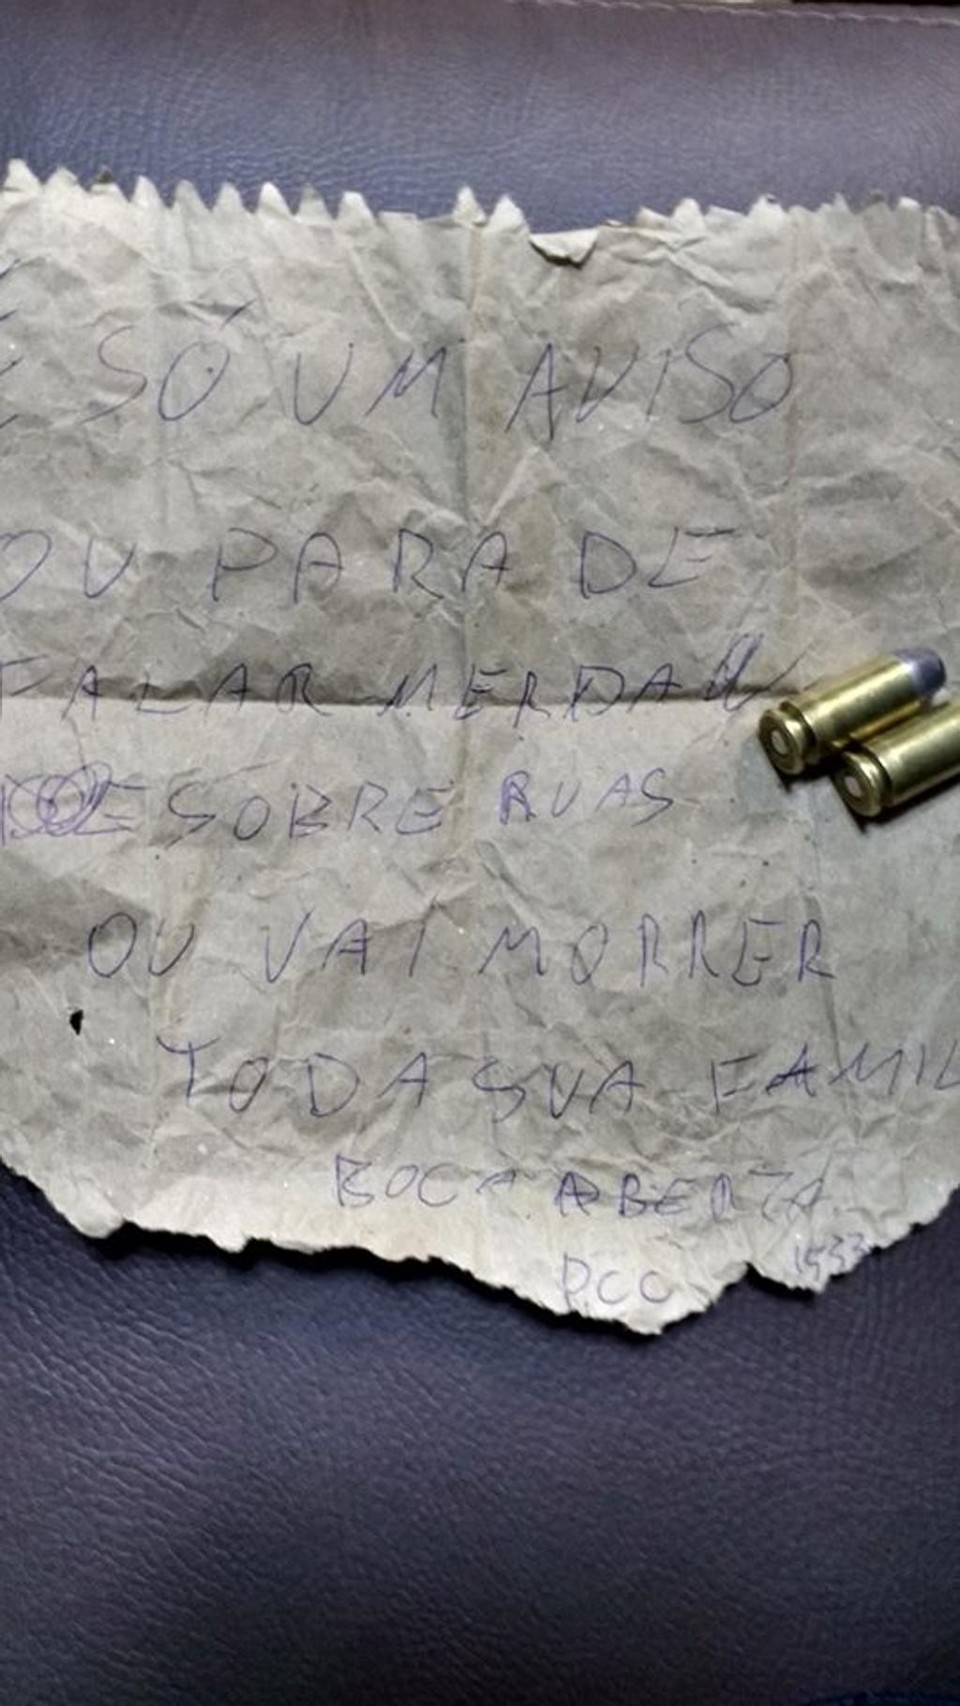 É SÓ UM AVISO
OU PARA DE
FALAR MERDA
SOBRE RUAS
OU VAI MORRER
TODA SUA FAMIL
BOCA ABERTA
PCC 1533